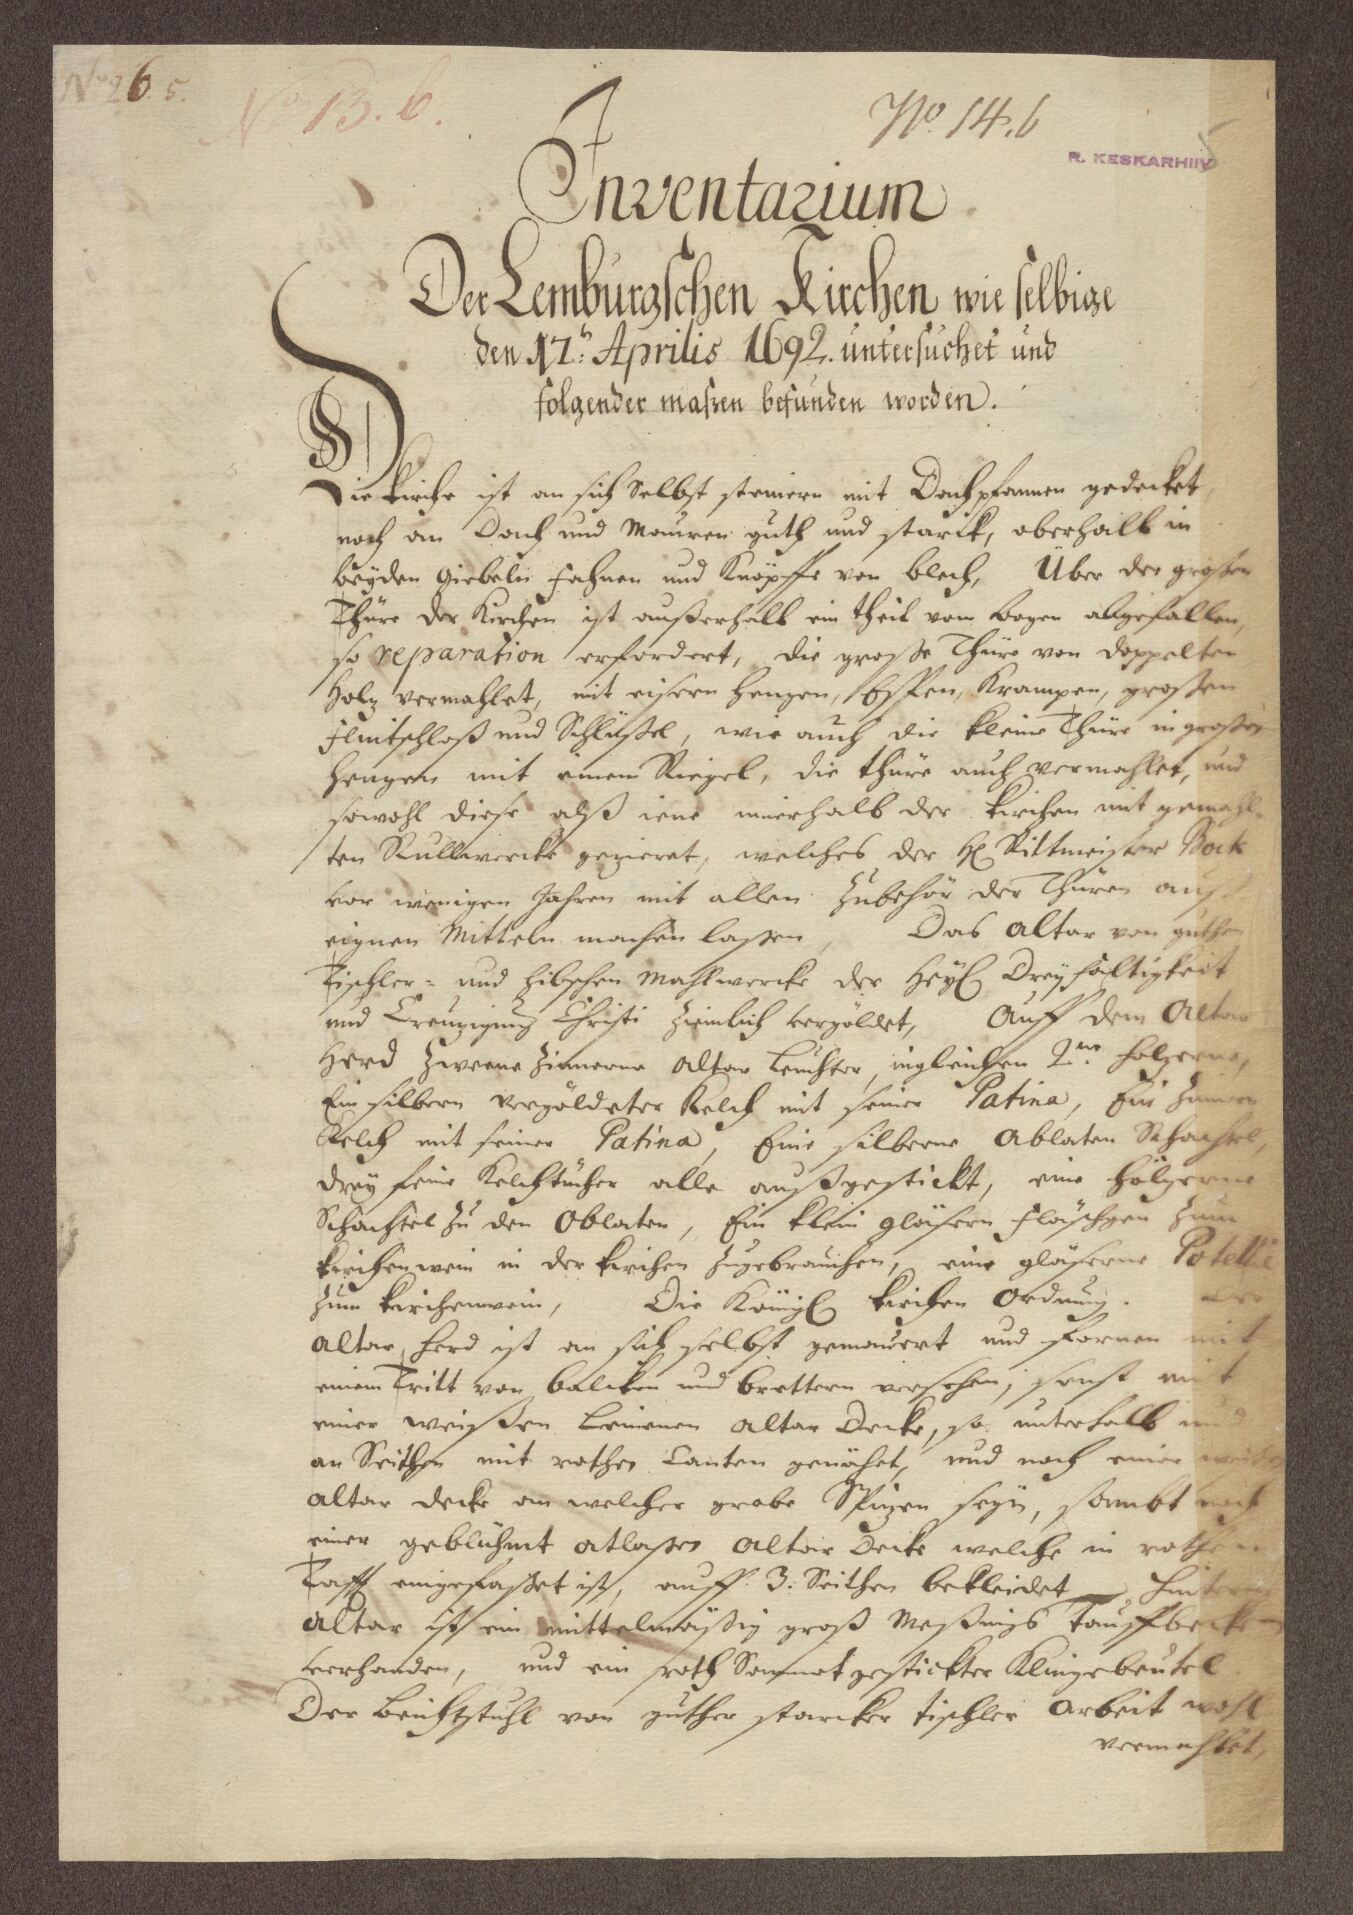 No 26. 5.
No 13. b.
No. 14. b
5
R. KESKARHIIV
Inventarium
Der Lemburgschen Kirchen wie selbige
den 17t: Aprilis 1692. untersuchet und
folgender maßen befunden worden.
Die Kirche ist an sich Selbst steinern mit Dachpfannen gedecket,
noch an Dach und Mauren guth und starck, oberhalb in
beyden Giebeln Fahnen und Knöpffe von blech, Über der großen
Thüre der Kirchen ist außerhalb ein theil vom bogen abgefallen,
so reparation erfordert, die große Thüre von doppelten
Holz vermahlet, mit eisern Hengen, Krampen, großen
Flintschloß und Schlüßel, wie auch die kleine Thüre in großen
Hengen mit einem Riegel, die thüre auch vermahlet, und
sowohl diese alß iene innerhalb der Kirchen mit gemahl-
ten Rullwercke gezieret, welches der H. Rittmeister Bock
vor wenigen Jahren mit allen Zubehör der Thüren auß
eignen Mitteln machen laßen, Das Altar von guthen
Tischler- und hibschen Mahlwercke der Heyl Dreyfaltigkeit
und Creuzigung Christi ziemlich vergöldet, Auff dem Altar
Herd zweene zinnerne Altar Leuchter, ingleichen 2ne holzerne,
Ein silbern vergöldeter Kelch mit seiner Patina, Ein zinnern
Kelch mit seiner Patina, Eine silberne Ablaten Schachtel,
drey feine Kelchtücher alle außgestickt, eine hölzerne
Schachtel zu den Oblaten, Ein klein gläsern Fläschgen zum
Kirchenwein in der Kirchen zugebrauchen, eine gläserne Potellie
zum Kirchenwein, Die Königl Kirchen Ordnung. Der
Altar Herd ist an sich selbst gemauert und fornen mit
einem Tritt von balcken und brettern versehen, sonst mit
einer weißen Leinenen Altar Decke, so unterhalb und
an Seithen mit rothen Canten genähet, und noch einer weißen
Altar decke an welcher grobe Spizen seyn, sambt noch
einer geblühmt atlaßen Altar Decke welche in rothem
Tafft eingefaßet ist, auff 3: Seithen bekleidet, Hinterm
Altar ist ein mittelmäßig groß Meßings Tauffbecken
verhanden, und ein roth Sammet gestickter Klingebeutel
Der Beichtstuhl von guther starcker tischler Arbeit wohl
vermahlet,